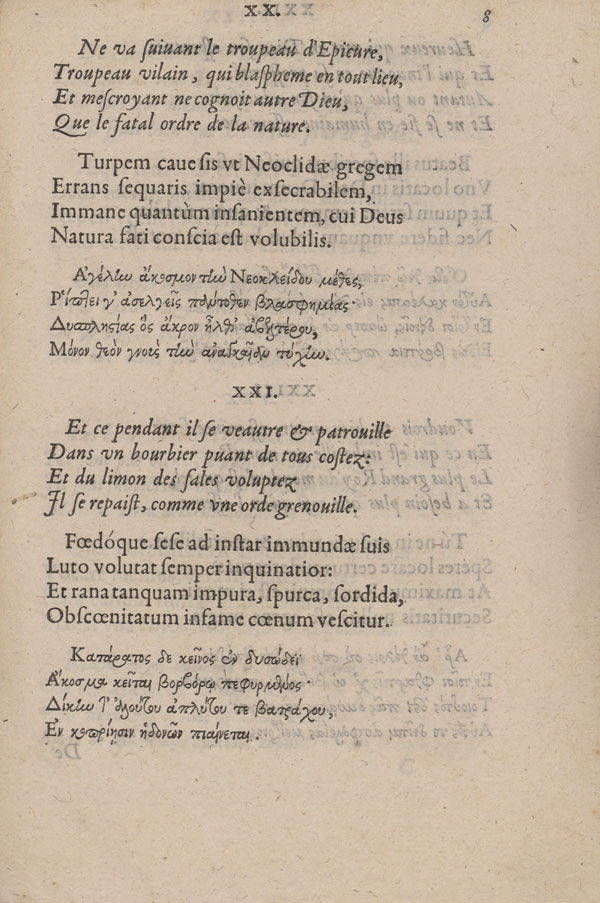 XX.
8
Ne va ſuiuant le troupeau d'Epicure,
Troupeau vilain, qui blaſpheme en tout lieu,
Et meſcroyant ne cognoit autre Dieu,
Que le fatal ordre de la nature.
Turpem caue sis vt Neoclidæ gregem
Errans ſequaris impiè exſecrabilem,
Immane quantùm inſanientem, cui Deus
Natura fati conſcia eſt volubilis.
Αγέλὶω ἄκοσμον τὶω Νεοκλείδου μέθες,
Ρίπτει γ' ἀσελγεῖς πάντοθεν βλασφημίας·
Δυσπλησίας ὃς ἄκρον ἦλθ'
Μόνον θεὸν γνοὶς τὶω ἀναγκαῖαν τύχὶω.
XXI.
Et ce pendant il ſe veautre & patrouille
Dans vn bourbier puant de tous coſtez:
Et du limon des ſales voluptez
Il ſe repaiſt, comme vne orde grenouille.
Fœdóque ſeſe ad inſtar immundæ ſuis
Luto volutat ſemper inquinatior:
Et rana tanquam impura, ſpurca, ſordida,
Obſcœnitatum infame cœnum veſcitur.
Κατάρατος δε κεῖνος ἐν δυσώδει
Ακοσμα κεῖται βορβόρῳ πεφυρμένος·
Δίκὶω βατράχου,
Εν κοπρίησιν ἡδονῶν πιαίνεται.